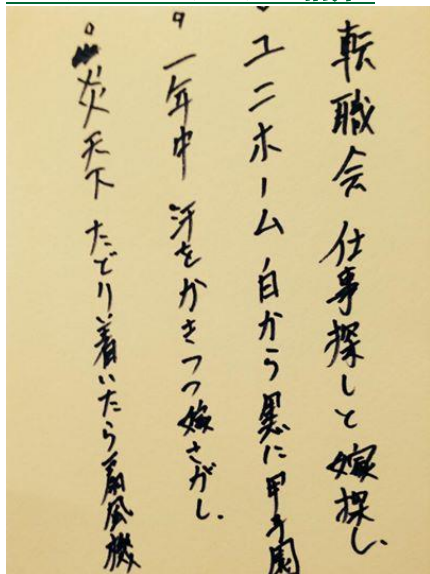 転職会 仕事探しと嫁探し
・ユニホーム 白から黒に甲子園
・一年中 汗をかきつつ嫁さがし
・炎天下 たどり着いたら扇風機